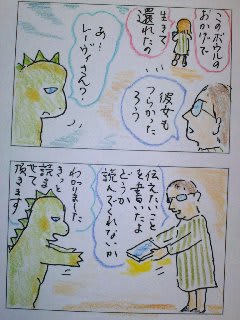 このボウルの
おかげで
生きて
還れたの
彼女も
つらかった
ろう
あ…
レーヴィさん?
伝えたいこと
を書いたよ
どうか
読んでくれないか
わかりました
きっと
読ませ
せて
頂きます